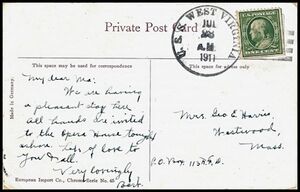 Private Post Card
U.S.S. WEST VIRGINIA
JUL
28
A.M.
1911
This space may be used for correspondence
My dear Ma:
We are having
a pleasant stay here
All hands are invited
to the Opera House tonight
ashore. Lots of love to
you & all.
Very lovingly
Bert.
Made in Germany.
European Import Co., Chrome-Serie No. 45
Mrs. Geo E Harris,
Westwood,
Mass.
P.O. Box